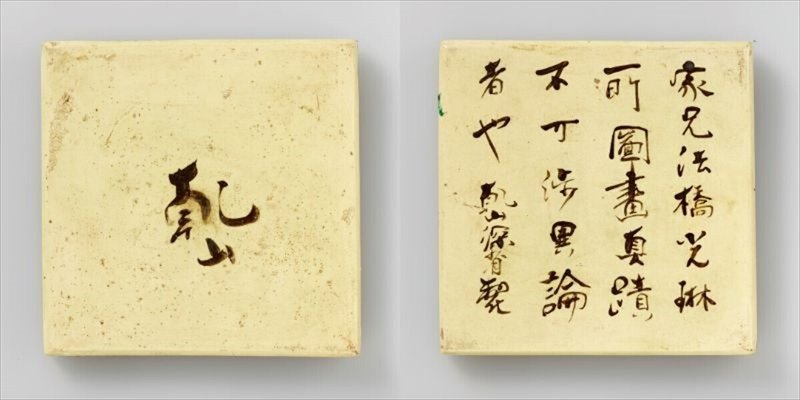 乾山
家兄法橋光琳
所圖畫真蹟
不可涉異論
者也乾山深省